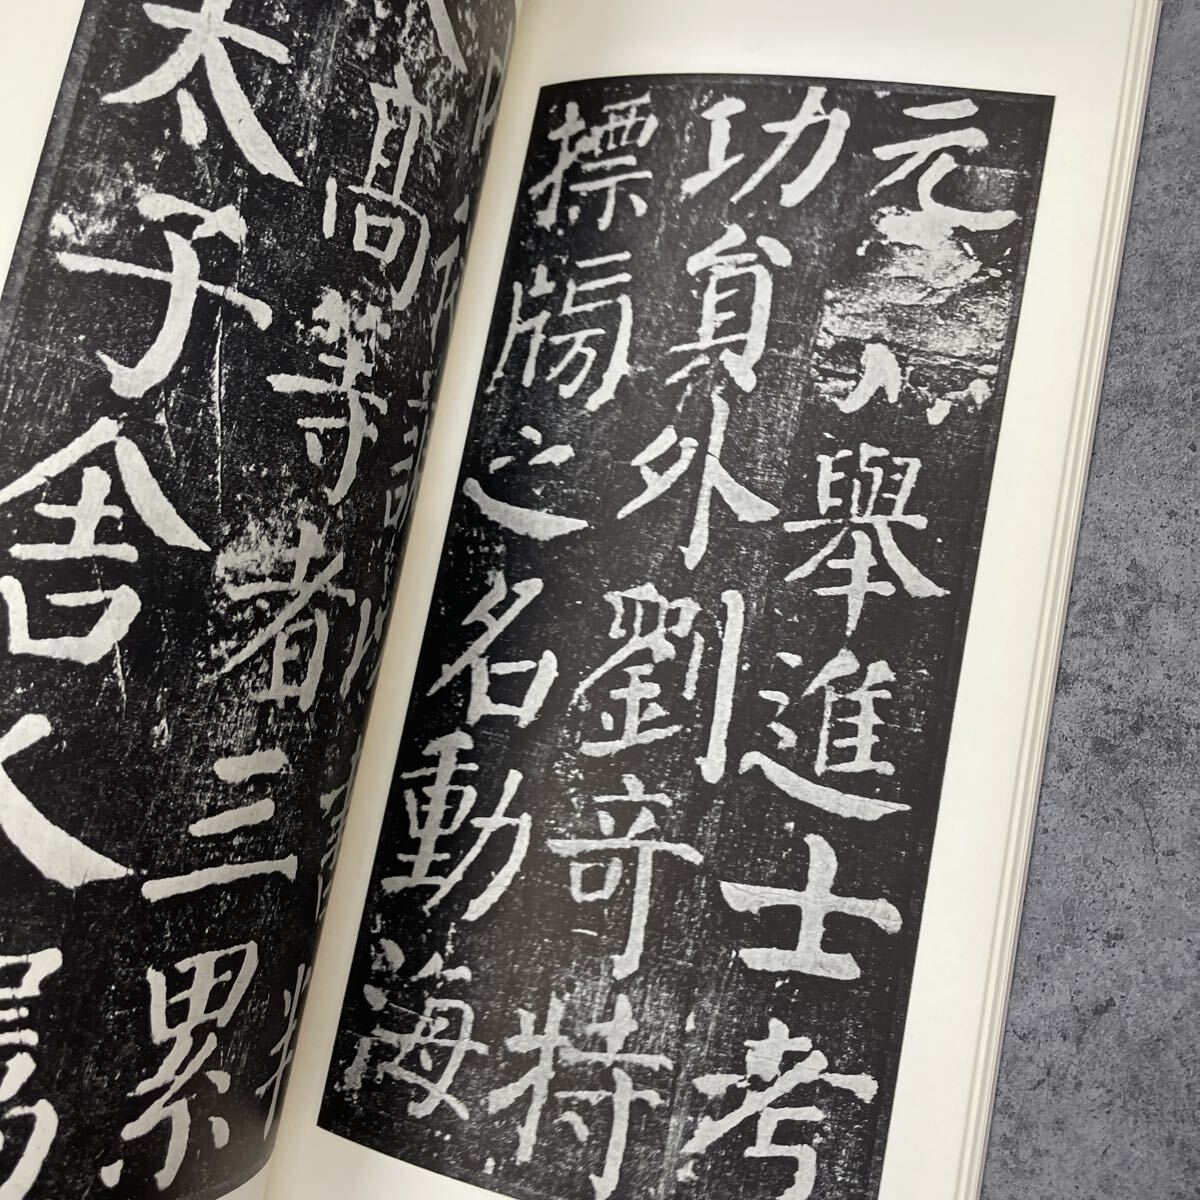 元舉進士考
功貟外劉竒特
摽牓之名動海
高等者三累
太子舍人